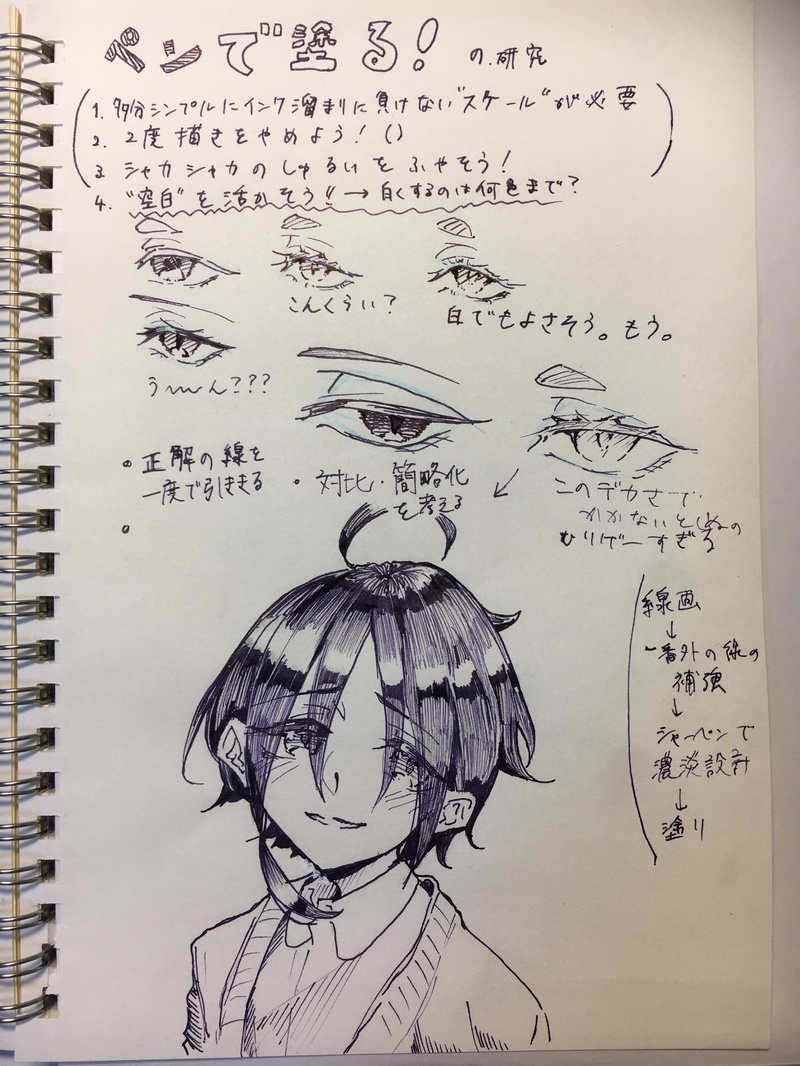 ペンで塗る! の.研究
1. 多分シンプルにインク溜まりに負けない"スケール"が必要
2. 2度描きをやめよう! ()
3 シャカシャカのしゅるいをふやそう!
4. "空白"を活かそう!! → 白くするのは何色まで?
こんくらい?
白でもよさそう。もう。
う〜ん???
• 正解の線を
一度で引ききる
• 対比・簡略化
を考える
このデカさで
かかないとしぬの
むりげーすぎる
線画
↓
外の線の
補強
↓
シャーペンで
濃淡設計
↓
塗り